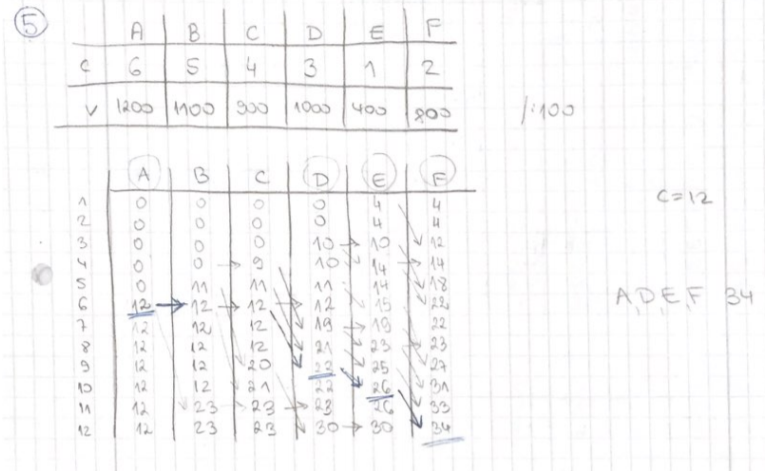 5
A B C D E F
c 6 5 4 3 1 2
v 1200 1100 900 1000 400 800
/:100
A B C D E F
1 0 0 0 0 4 4
2 0 0 0 0 4 4
3 0 0 0 10 → 10 12
4 0 0 → 9 10 14 → 14
5 0 11 11 11 14 18
6 12 → 12 → 12 → 12 15 22
7 12 12 12 19 → 19 22
8 12 12 12 21 23 23
9 12 12 20 22 25 27
10 12 12 21 22 26 31
11 12 23 → 23 → 23 26 33
12 12 23 23 30 → 30 34
C=12
A,D,E,F 34